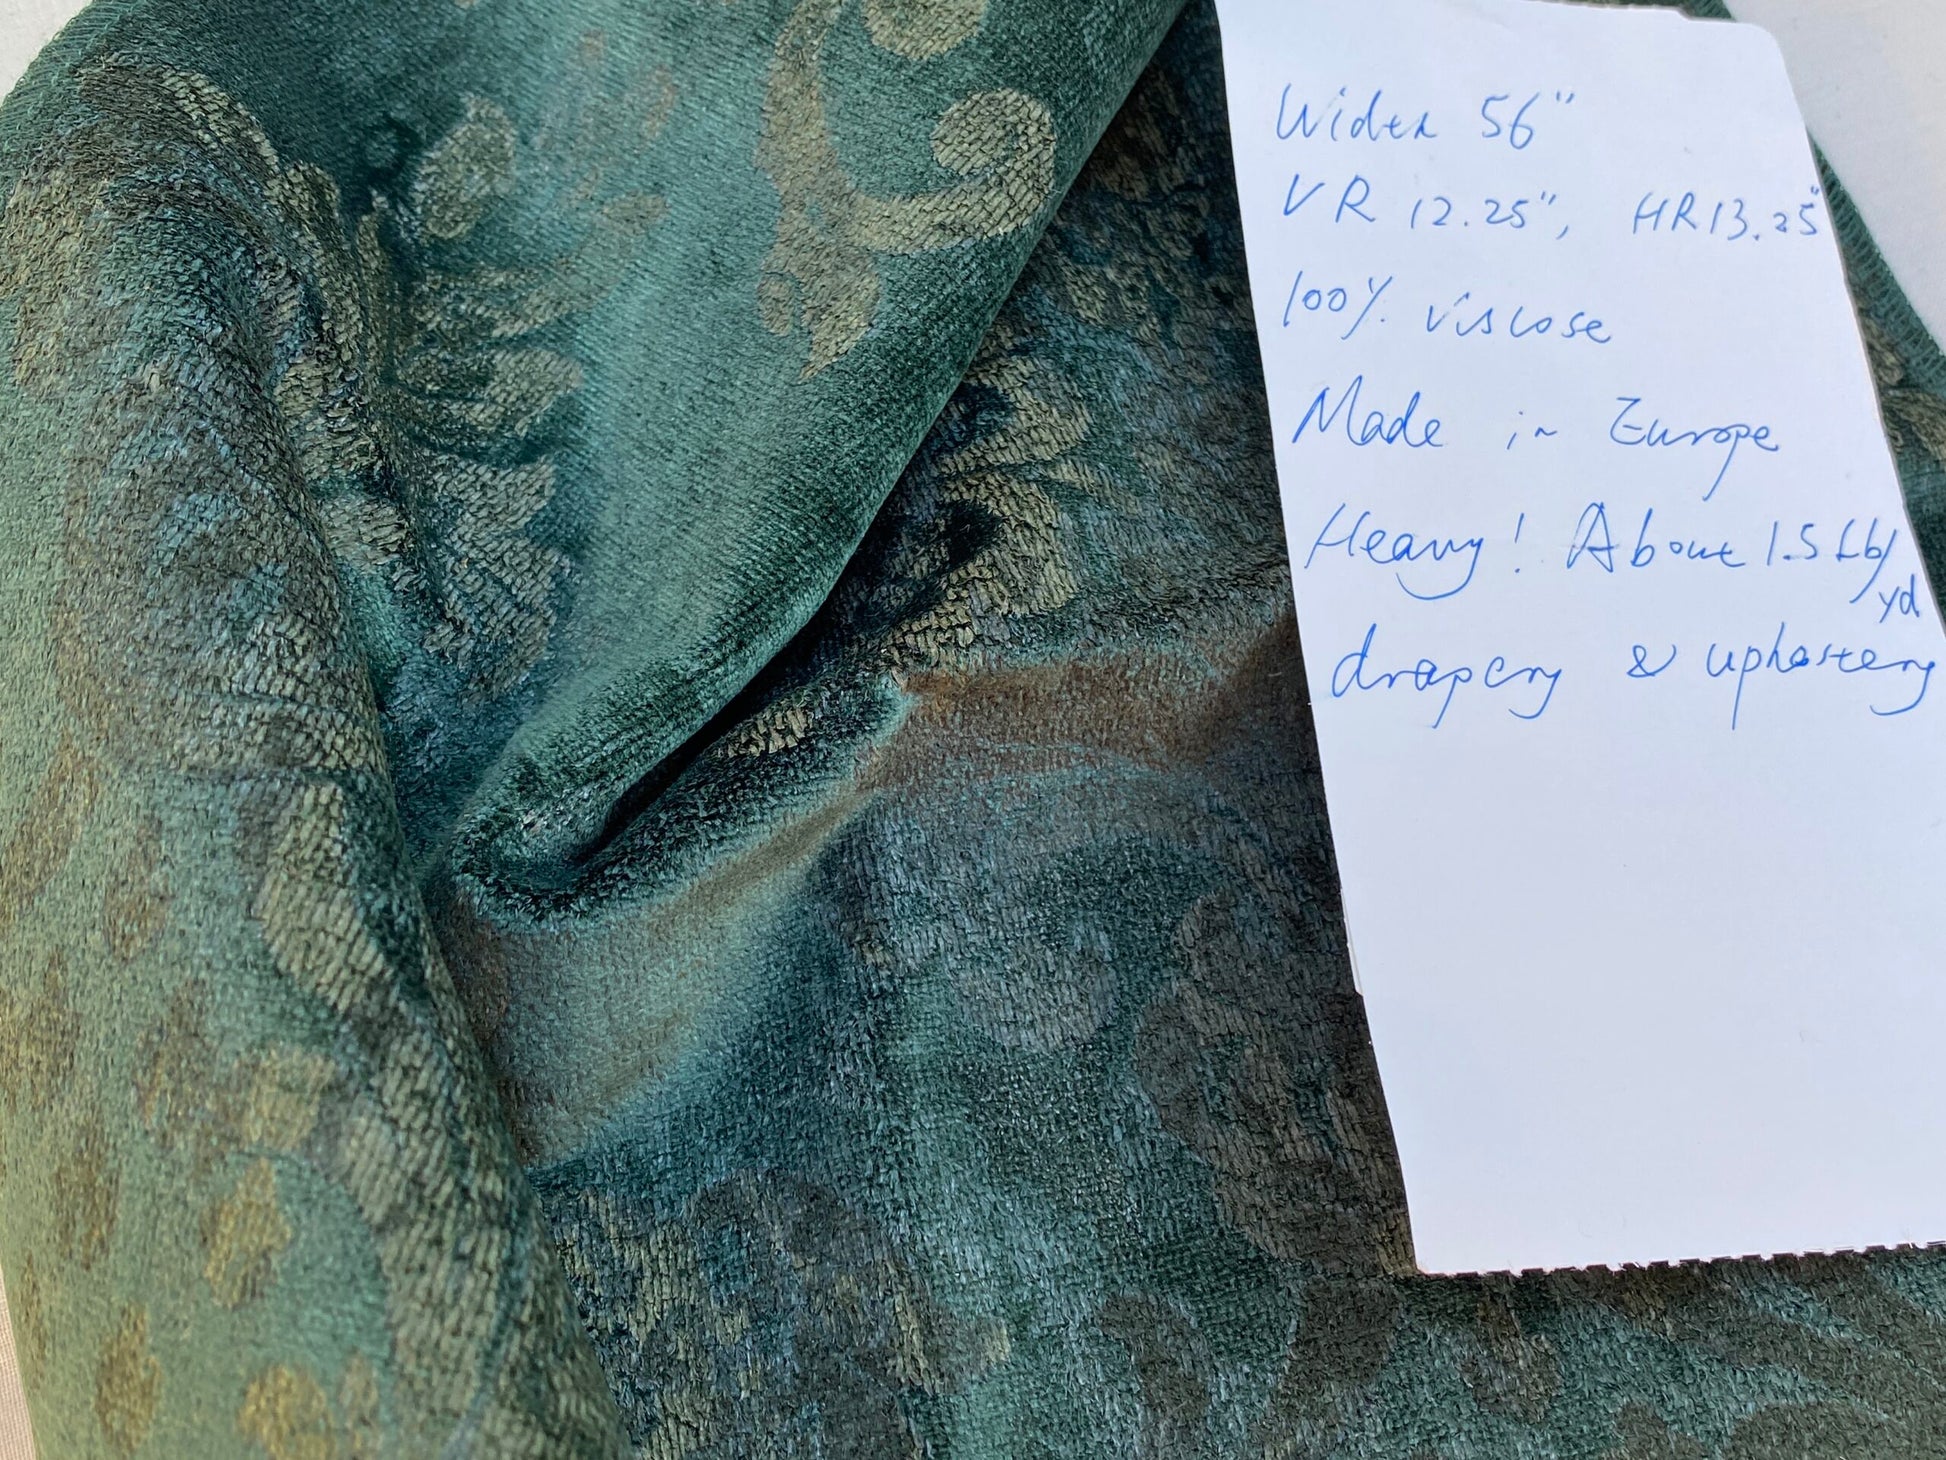 Widen 56"
VR 12.25", HR13.25"
100% viscose
Made in Europe
Heavy! About 1.5 Lb/yd
drapery & upholstery